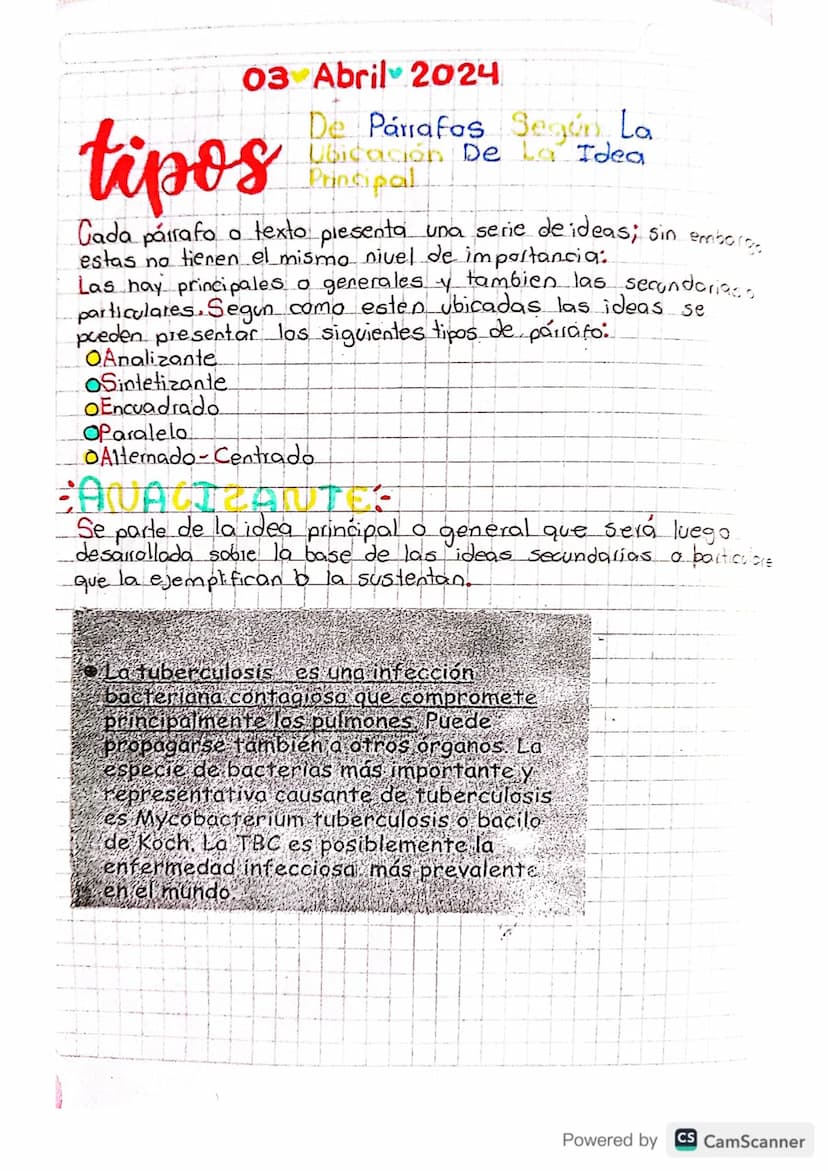 03 Abril 2024
tipos
De Párrafos Según La
Ubicación De La Idea
Principal
Cada párrafo o texto presenta una serie de ideas; sin embargo
estas no tienen el mismo nivel de importancia:
Las hay principales o generales y tambien las secundarias o
particulares. Segun como esten ubicadas las ideas se
pueden presentar los siguientes tipos de párrafo:
Analizante
Sintetizante
Encuadrado
Paralelo
Alternado - Centrado
ANALIZANTE
Se parte de la idea principal o general que será luego
desarrollada sobre la base de las ideas secundarias o
que la ejemplifican o la sustentan.
• La tuberculosis es una infección
bacteriana contagiosa que compromete
principalmente los pulmones. Puede
propagarse también a otros órganos. La
especie de bacterias más importante y
representativa causante de tuberculosis
es Mycobacterium tuberculosis o bacilo
de Koch. La TBC es posiblemente la
enfermedad infecciosa más prevalente
en el mundo.
Powered by CS CamScanner